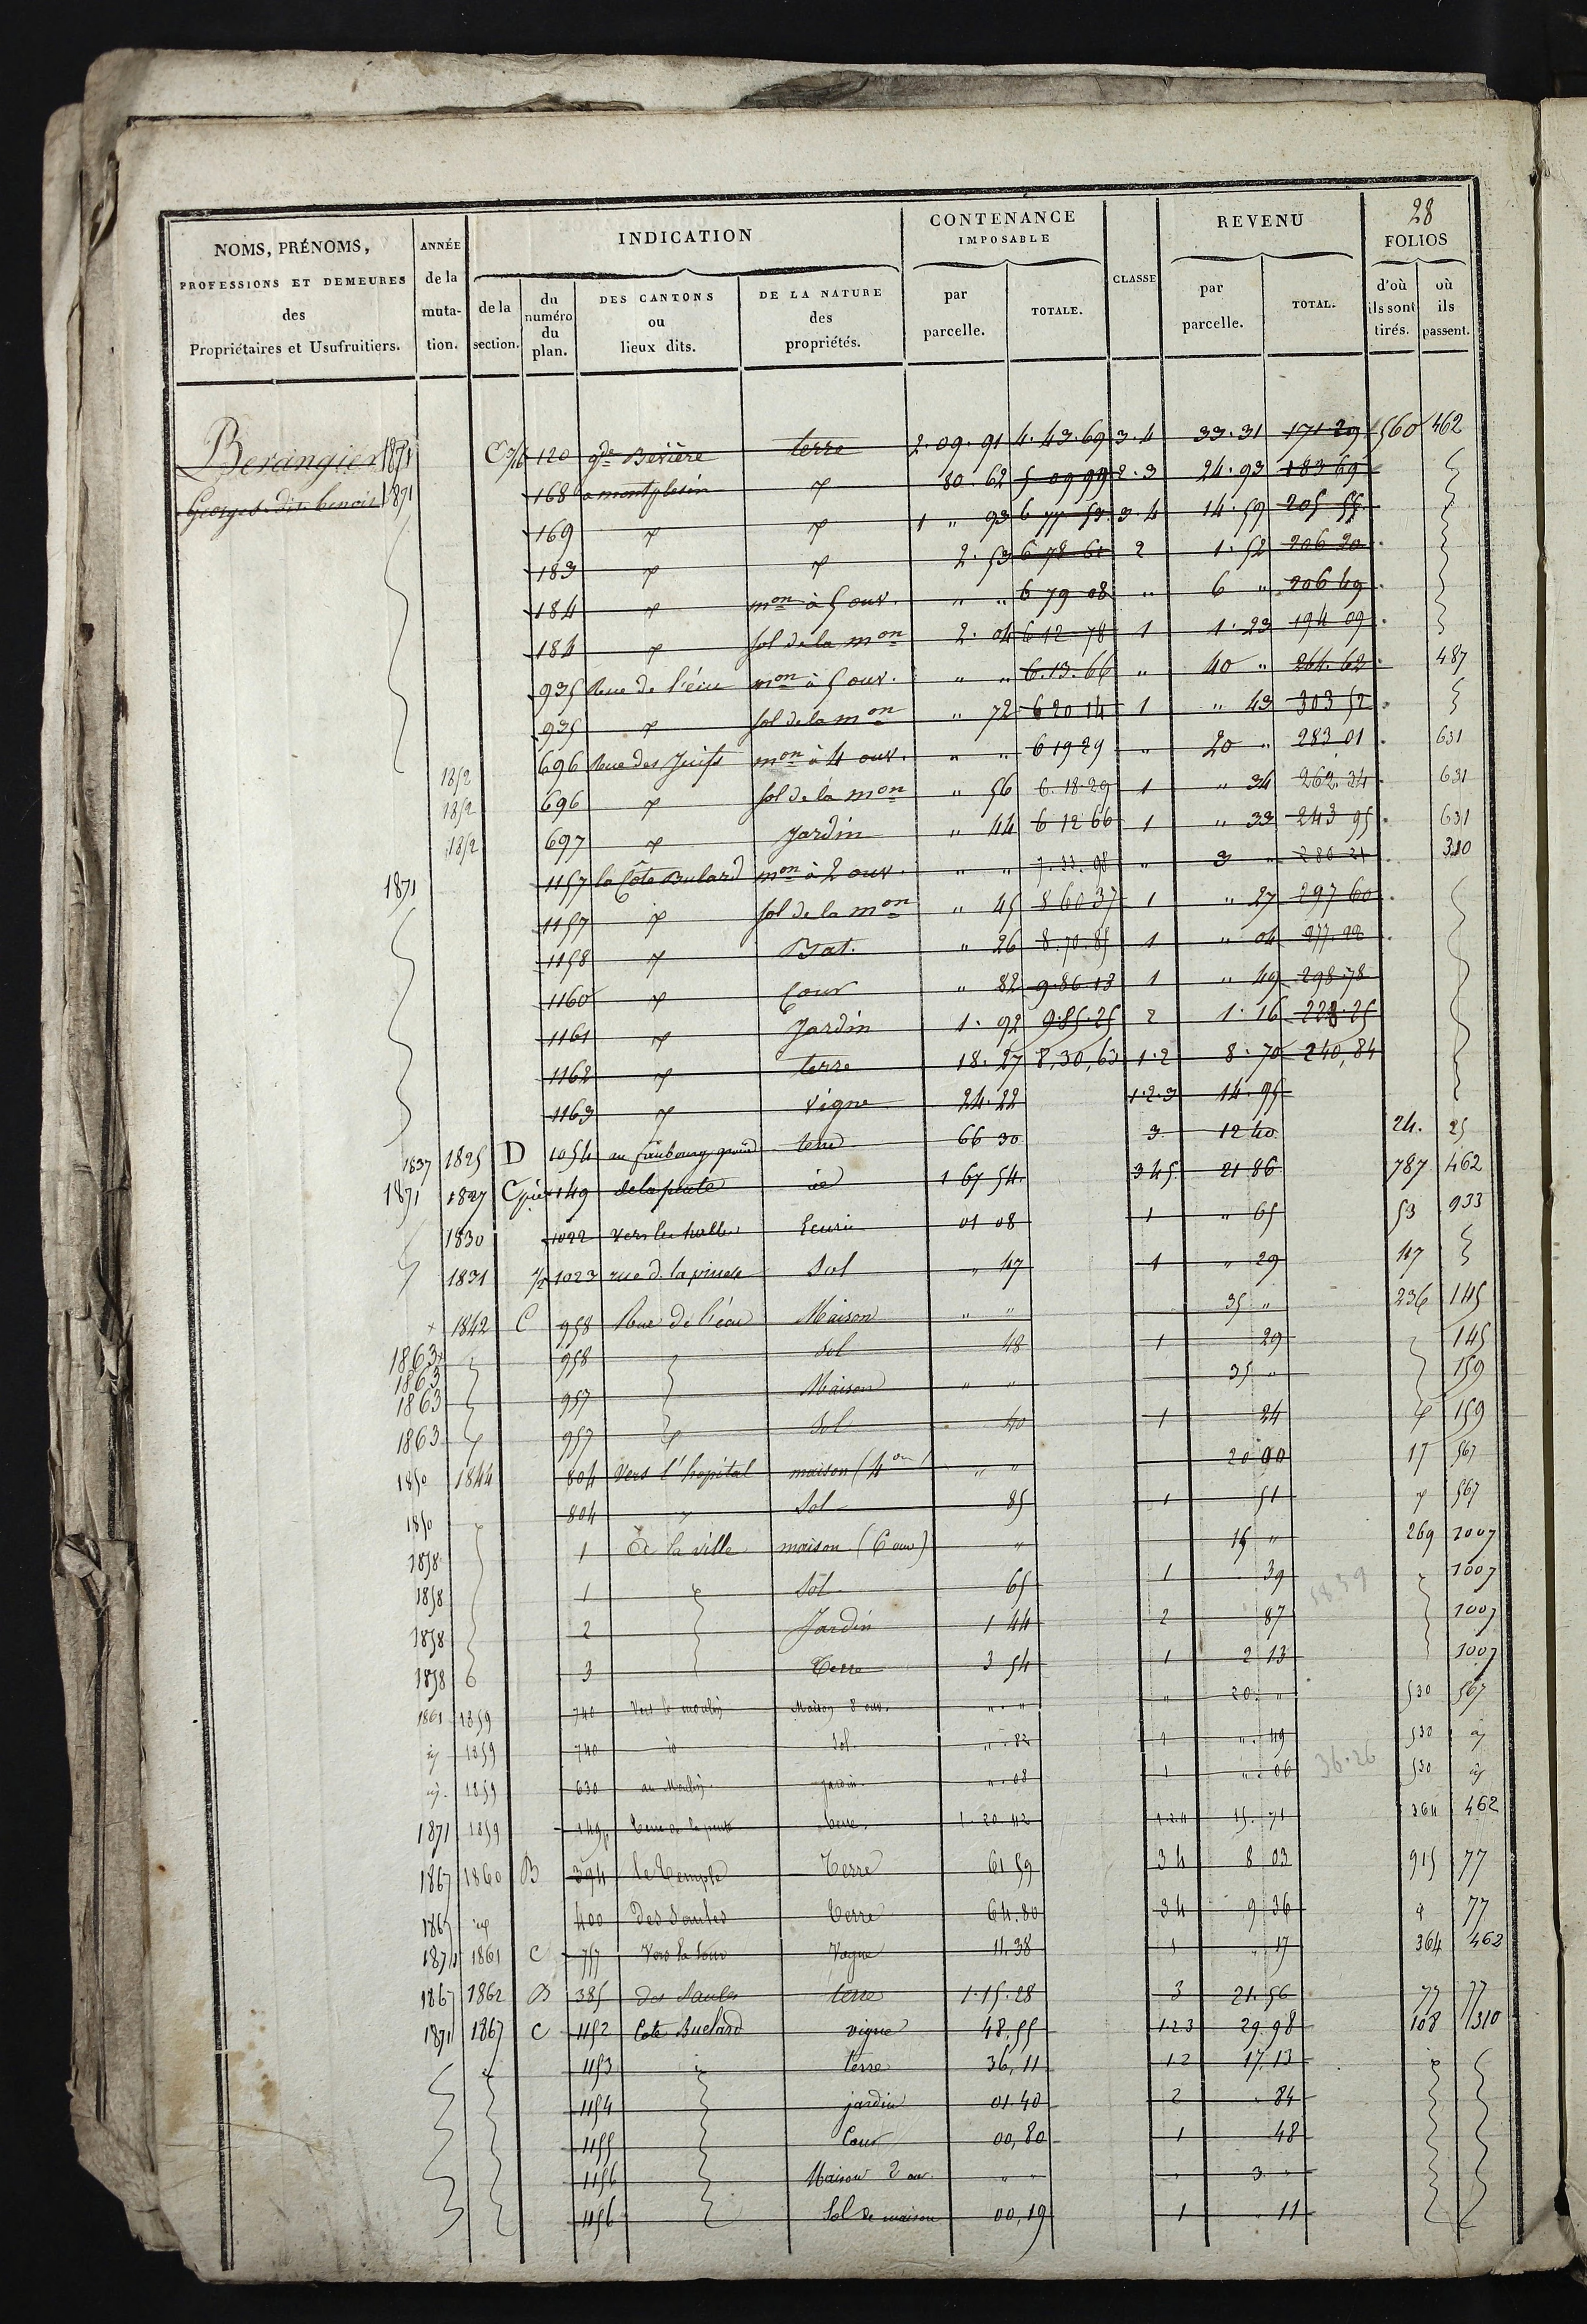 28
NOMS, PRÉNOMS, PROFESSIONS ET DEMEURES des Propriétaires et Usufruitiers.
ANNÉE de la muta- tion.
INDICATION
de la section.
du numéro du plan.
DES CANTONS ou lieux dits.
DE LA NATURE des propriétés.
CONTENANCE IMPOSABLE
par parcelle.
TOTALE.
CLASSE
REVENU
par parcelle.
TOTAL.
FOLIOS
d'où ils sont tirés.
où ils passent.
Berangier 1871 120 gde Bevière terre 2.09.91 4.43.69 3.4 33.31 171 29 560 462
Georges dit benoit 1871 168 a montplesin 80.62 5 09 99 2.3 24.93 183 69
169 1 " 93 6 77 53 3.4 14.59 205 55
183 2.53 6 78 61 2 1.52 206 20
184 mon à 5 ouv. " " 6 79 08 " 6 " 206 49
184 sol de la mon 2.04 6 12 78 1 1.23 194 09
935 Rue de l'écu mon à 5 ouv. " " 6.13.66 " 40 " 264.62 487
935 sol de la mon " 72 6 20 14 1 " 43 303 52
1852 696 Rue des Juifs mon à 4 ouv. " " 6 19 29 " 20 " 283 01 631
1852 696 sol de la mon " 56 6.18.29 1 " 34 262.34 631
1852 697 Jardin " 44 6 12 66 1 " 33 243 95 631
1871 1157 la Côte Bulard mon à 2 ouv. " " 7.33.08 " 3 " 280 21 310
1157 sol de la mon " 45 8 60 37 1 " 27 297 60
1158 Bat. " 26 8.70.85 1 " 04 277.22
1160 Cour " 82 9.86.13 1 " 49 298.78
1161 Jardin 1.92 9.85.25 2 1.16 228.25
1162 terre 18.27 8,30,63 1.2 8.70 240,84
1163 vigne 24.22 1.2.3 14.95
1837 1825 D 1054 au faubourg terre 66 30 3 12 40 24. 25
1871 1827 149 de la peute 1 67 54 3 4 5 21 86 787 462
1830 1022 vers les halles Ecurie 01 08 1 " 65 53 933
1831 1/2 1023 rue d. la Sol " 47 1 " 29 47
1842 C 958 Rue de l'écu Maison " " 35 " 236 145
1863 958 Sol 48 1 29 145
1863
1863 957 Maison " " 35 " 159
1863 957 Sol 40 1 24 159
1850 1844 804 Vers l'hopital maison (4 ou) " " 20 00 17 567
1850 804 " Sol 85 1 51 567
1858 1 à la ville maison (6 ouv) " 15 " 269 1007
1858 1 Sol 65 1 39 1007
58 39
1858 2 Jardin 1 44 2 87 1007
1858 3 Terre 3 54 1 2 13 1007
1861 1859 740 Vers le moulin Maison 8 ouv. " " " 20 " 530 567
1859 740 id Sol " 82 1 " 49 530
36.26
1859 630 au Moulin Jardin " 08 1 " 06 530
1871 1859 149p terre 1.20.42 15.71 364 462
1867 1860 B 394 le Temple Terre 61 59 3 4 8 03 915 77
1867 400 des Saules Terre 64.80 3 4 9 36 77
1871 1861 C 757 Vers la Vague 11.38 1 17 364 462
1867 1862 B 385 des Saules terre 1.15.28 3 21.56 77 77
1871 1867 C 1152 Cote Buelard vigne 48,55 1 2 3 29.98 108 310
1153 terre 36,11 1 2 17.13
1154 jardin 01.40 2 84
1155 Cour 00,80 1 48
1156 Maison 2 ouv. " " 3 "
1156 Sol de maison 00,19 1 11